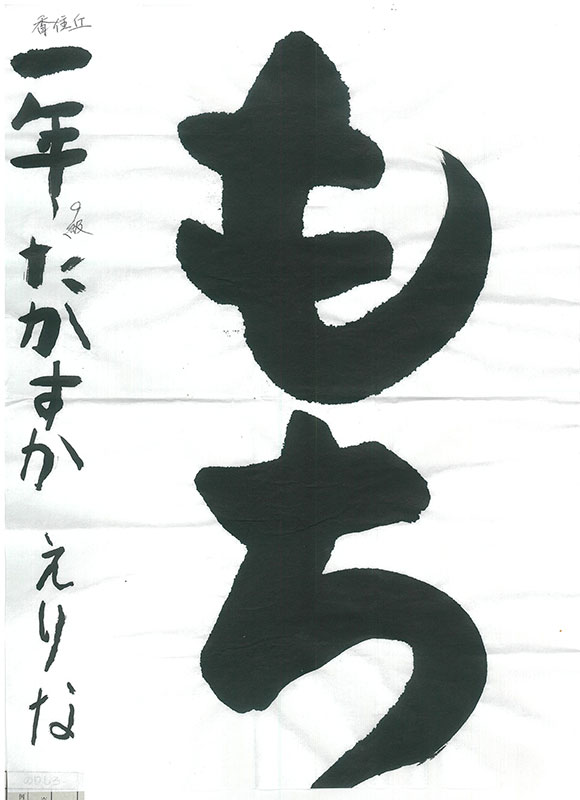 もち
香住丘
一年 たかすか えりな
9級